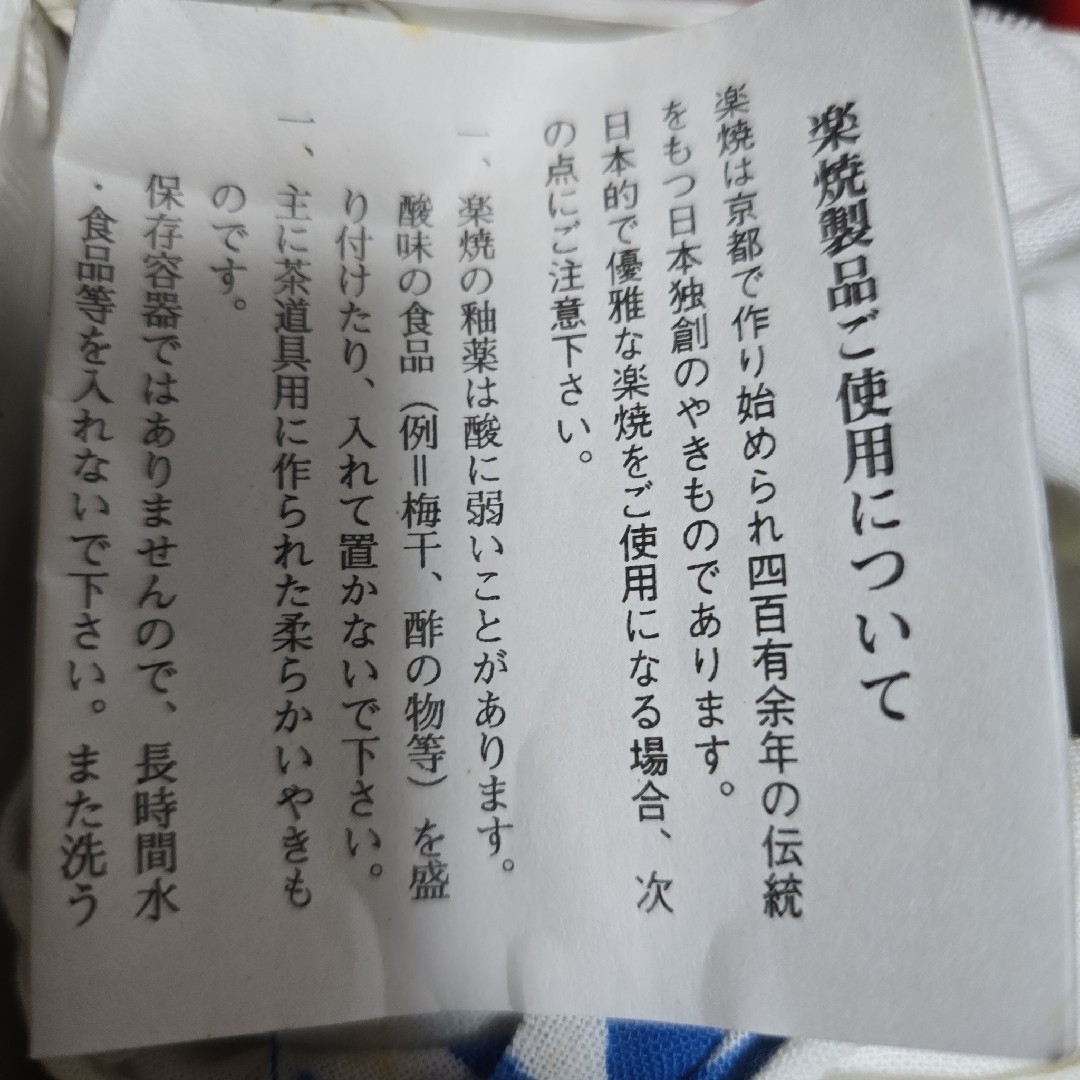 楽焼製品ご使用について
楽焼は京都で作り始められ四百有余年の伝統
をもつ日本独創のやきものであります。
日本的で優雅な楽焼をご使用になる場合、次
の点にご注意下さい。
一、楽焼の釉薬は酸に弱いことがあります。
酸味の食品（例＝梅干、酢の物等）を盛
り付けたり、入れて置かないで下さい。
一、主に茶道具用に作られた柔らかいやきも
のです。
保存容器ではありませんので、長時間水
・食品等を入れないで下さい。また洗う